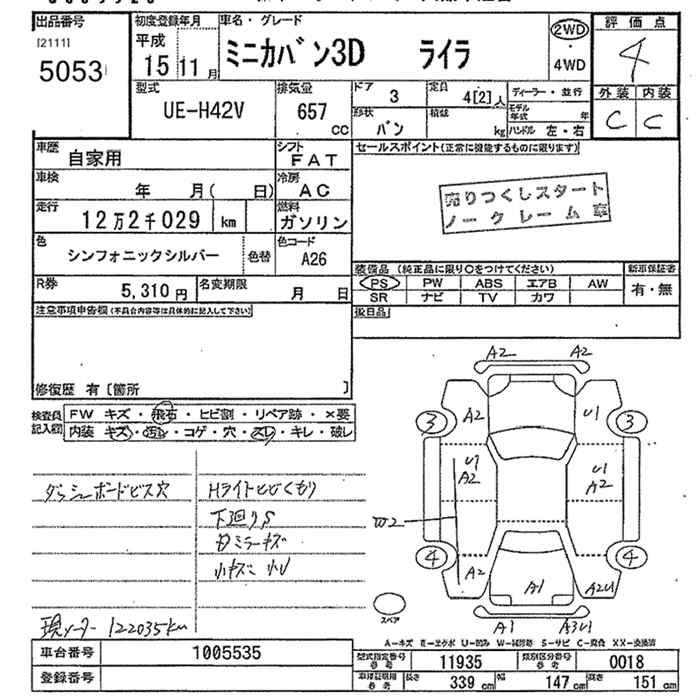 出品番号
[2111]
5053
初度登録年月
平成
15 11 月
車名・グレード
ミニカバン3D ライラ
2WD
・
4WD
評価点
4
外装 内装
C C
型式
UE-H42V
排気量
657
CC
ドア
3
定員
4[2]人
ディーラー・並行
形状
バン
積載
kg
モデル年式
年
ハンドル 左・右
車歴
自家用
シフト
FAT
車検
年 月( 日)
冷房
AC
走行
12万2千029 km
燃料
ガソリン
色
シンフォニックシルバー
色替
色コード
A26
R券
5,310円
名変期限
月 日
セールスポイント(正常に機能するものに限ります)
売りつくしスタート
ノークレーム車
装備品 (純正品に限り○をつけてください)
新車保証書
PS PW ABS エアB AW
有・無
SR ナビ TV カワ
後日品
注意事項申告欄(不具合内容等は具体的に記入して下さい)
修復歴 有〔箇所 〕
検査員
記入欄
FW キズ・飛石・ヒビ割・リペア跡・×要
内装 キズ・汚レ・コゲ・穴・スレ・キレ・破レ
ダッシュボードビス穴
Hライトヒビくもり
下廻りS
ミラーキズ
小キズ 小U
現メーター 122035km
A2 A2
3 A2 U1 3
U1 A2
U1 A2
W2
4 A2 A1 A2U 4
スペア
A1 A3U1
A-キズ E-エクボ U-凹み W-補修跡 S-サビ C-腐食 XX-交換済
車台番号
1005535
登録番号
型式指定番号
参考
11935
類別区分番号
参考
0018
車検証期用
参考
長さ
339 cm
幅
147 cm
高さ
151 cm